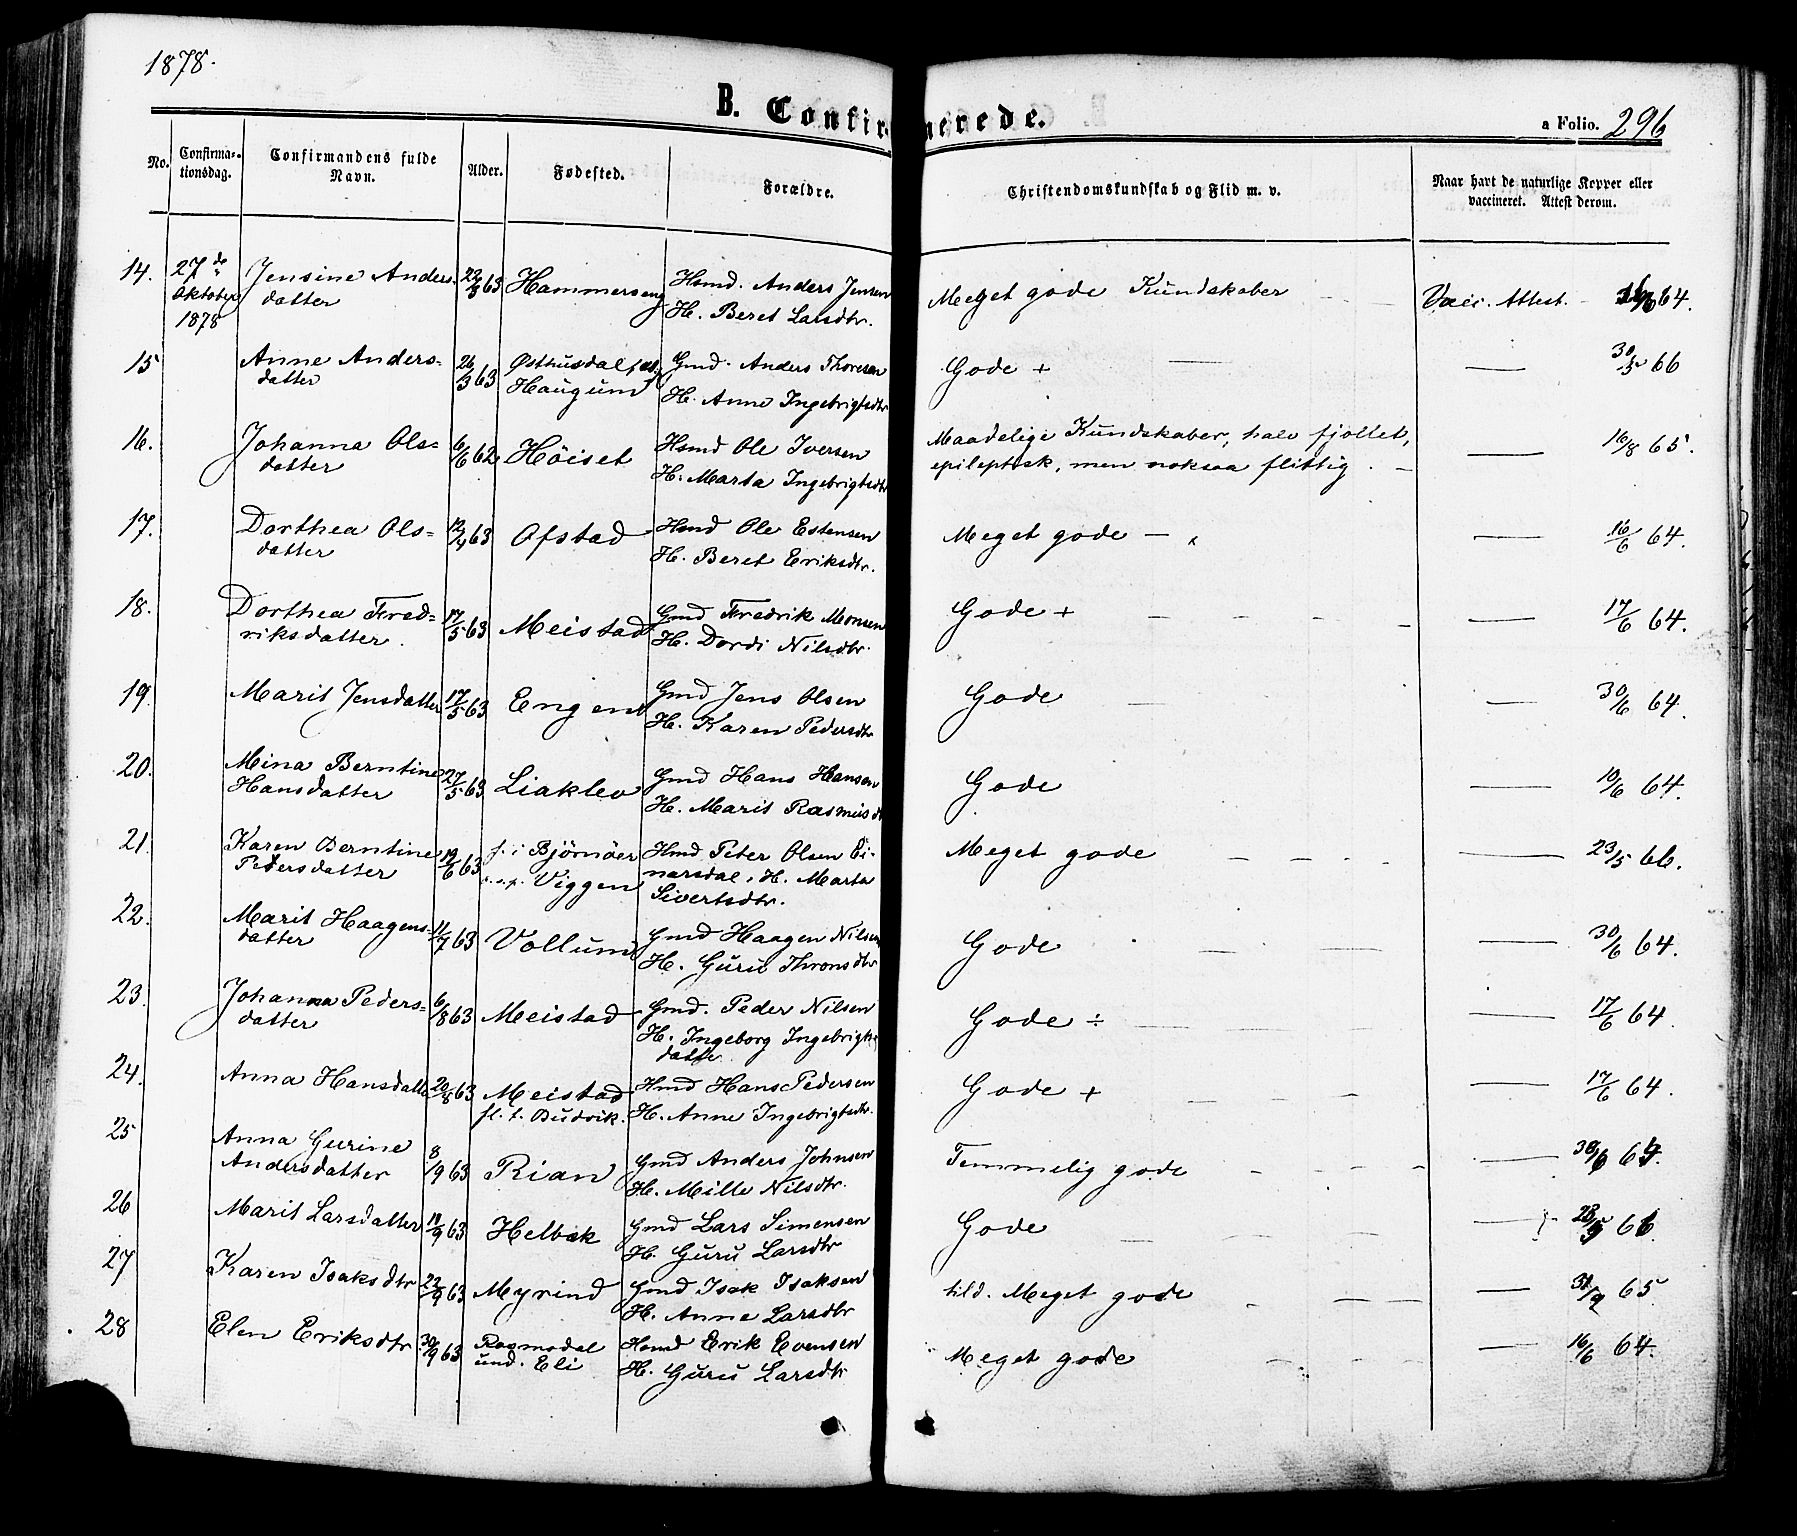 1878.
B. Confirmerede.
a Folio. 296
No. Confirma-tionsdag. Confirmandens fulde Navn. Alder. Fødested. Forældre. Christendomskundskab og Flid m. v. Naar havt de naturlige Kopper eller vaccineret. Attest derom.
14. 27de Jensine Anders- 22/8 63 Hammerseng Hsmd. Anders Jensen Meget gode Kundskaber Vacc. Attest. 64.
Oktober datter H. Beret Larsdtr.
1878
15 Anne Anders- 26/3 63 Østhusdal Gmd. Anders Thoresen Gode + — 30/5 66
datter Haugum H. Anne Ingebrigtsdtr
16. Johanna Ols- 6/6 62 Höiset Hsmd Ole Iversen Maadelige Kundskaber, halv fjollet, — 16/8 65.
datter H. Marta Ingebrigtsdtr epileptisk, men noksaa flittig. —
17. Dorthea Ols- 12/4 63 Ofstad Hsmd Ole Estensen Meget gode — — 16/6 64.
datter H. Beret Eriksdtr.
18. Dorthea Fred- 17/5 63 Meistad Gmd Fredrik Monsen Gode + — 17/6 64.
riksdatter. H. Dordi Nilsdtr.
19. Marit Jensdatter 17/5 63 Engen Gmd Jens Olsen Gode — 30/6 64.
H. Karen Pedersdtr
20. Mina Berntine 27/5 63 Liaklev Gmd Hans Hansen Gode — 10/6 64.
Hansdatter H. Marit Rasmusd
21. Karen Berntine 19/6 63 f. i Bjørnöer Hmd Peter Olsen Ei- Meget gode — 23/5 66.
Pedersdatter Viggen narsdal, H. Marta
Sivertsdtr.
22. Marit Haagens- 11/7 63 Vollum Gmd Haagen Nilsen Gode — 30/6 64.
datter H. Guru Thronsdtr
23. Johanna Peders- 6/8 63 Meistad Gmd. Peder Nilsen Gode ÷ — 17/6 64.
datter H. Ingeborg Ingebrigts
datter
24. Anna Hansdatter 20/8 63 Meistad Hmd Hans Pedersen Gode + — 17/6 64.
fl. t. Budvik. H. Anne Ingebrigtsdtr.
25 Anna Gurine 8/9 63 Rian Gmd Anders Johnsen Temmelig gode — 64.
Andersdatter H. Mille Nilsdtr.
26 Marit Larsdatter 18/9 63 Helbæk Gmd Lars Simensen Gode —
H. Guru Larsdtr
27 Karen Isaksdtr 22/9 63 Myrind Gmd Isak Isaksen tild. Meget gode — 65
H. Anne Larsdtr
28 Elen Eriksdtr 30/9 63 Rosmodal Hsmd Erik Evensen Meget gode — 16/6 64.
und. Eli H. Guru Larsdtr